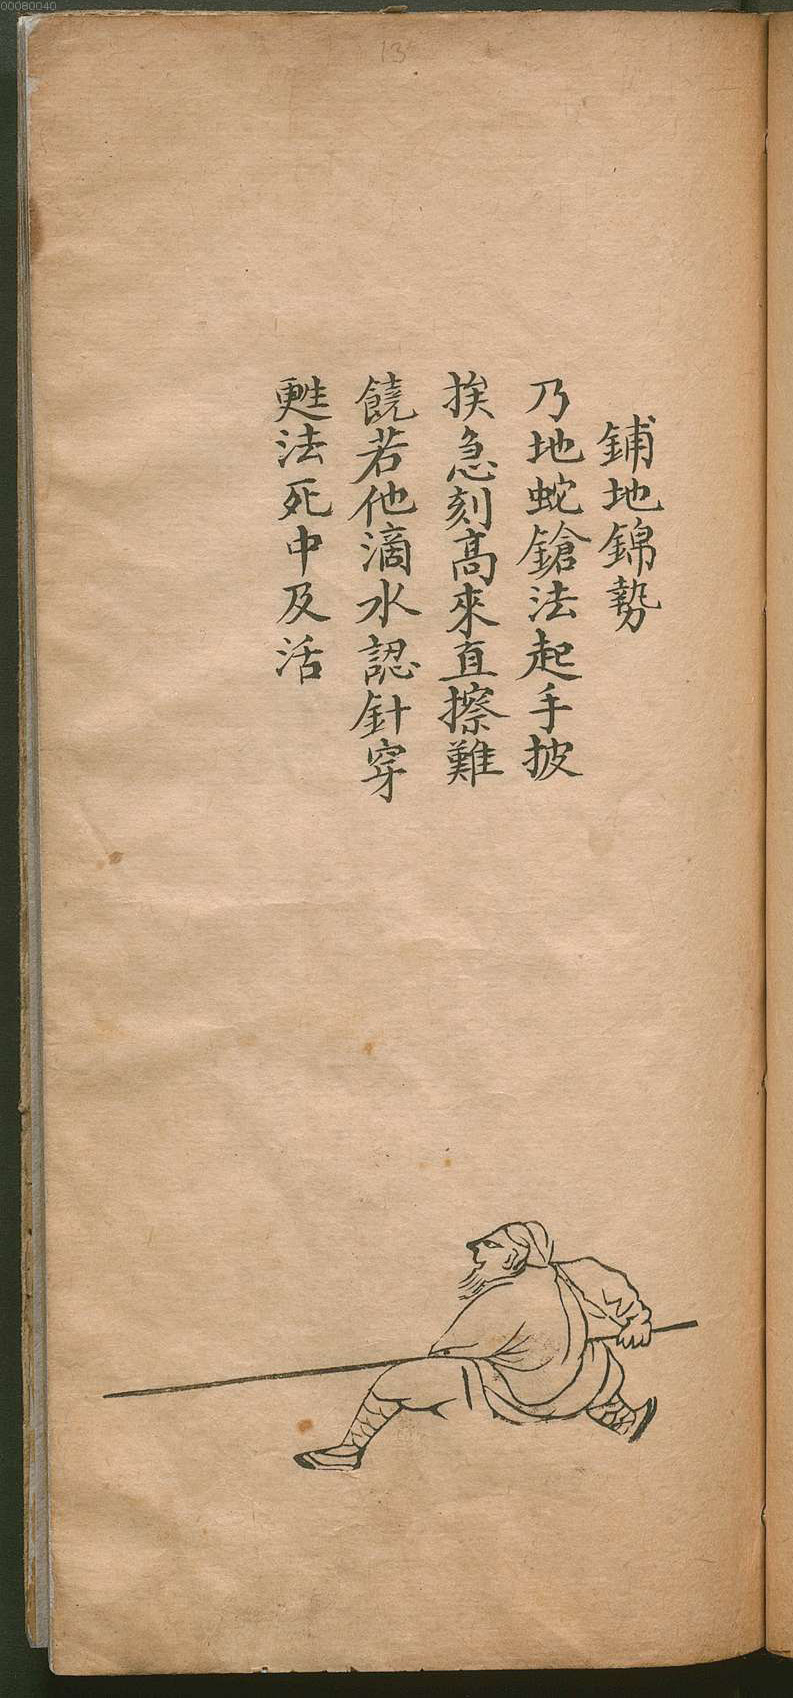 00080040
13
鋪地錦勢
乃地蛇鎗法起手披
挨急刻高來直擦難
饒若他滴水認針穿
甦法死中及活